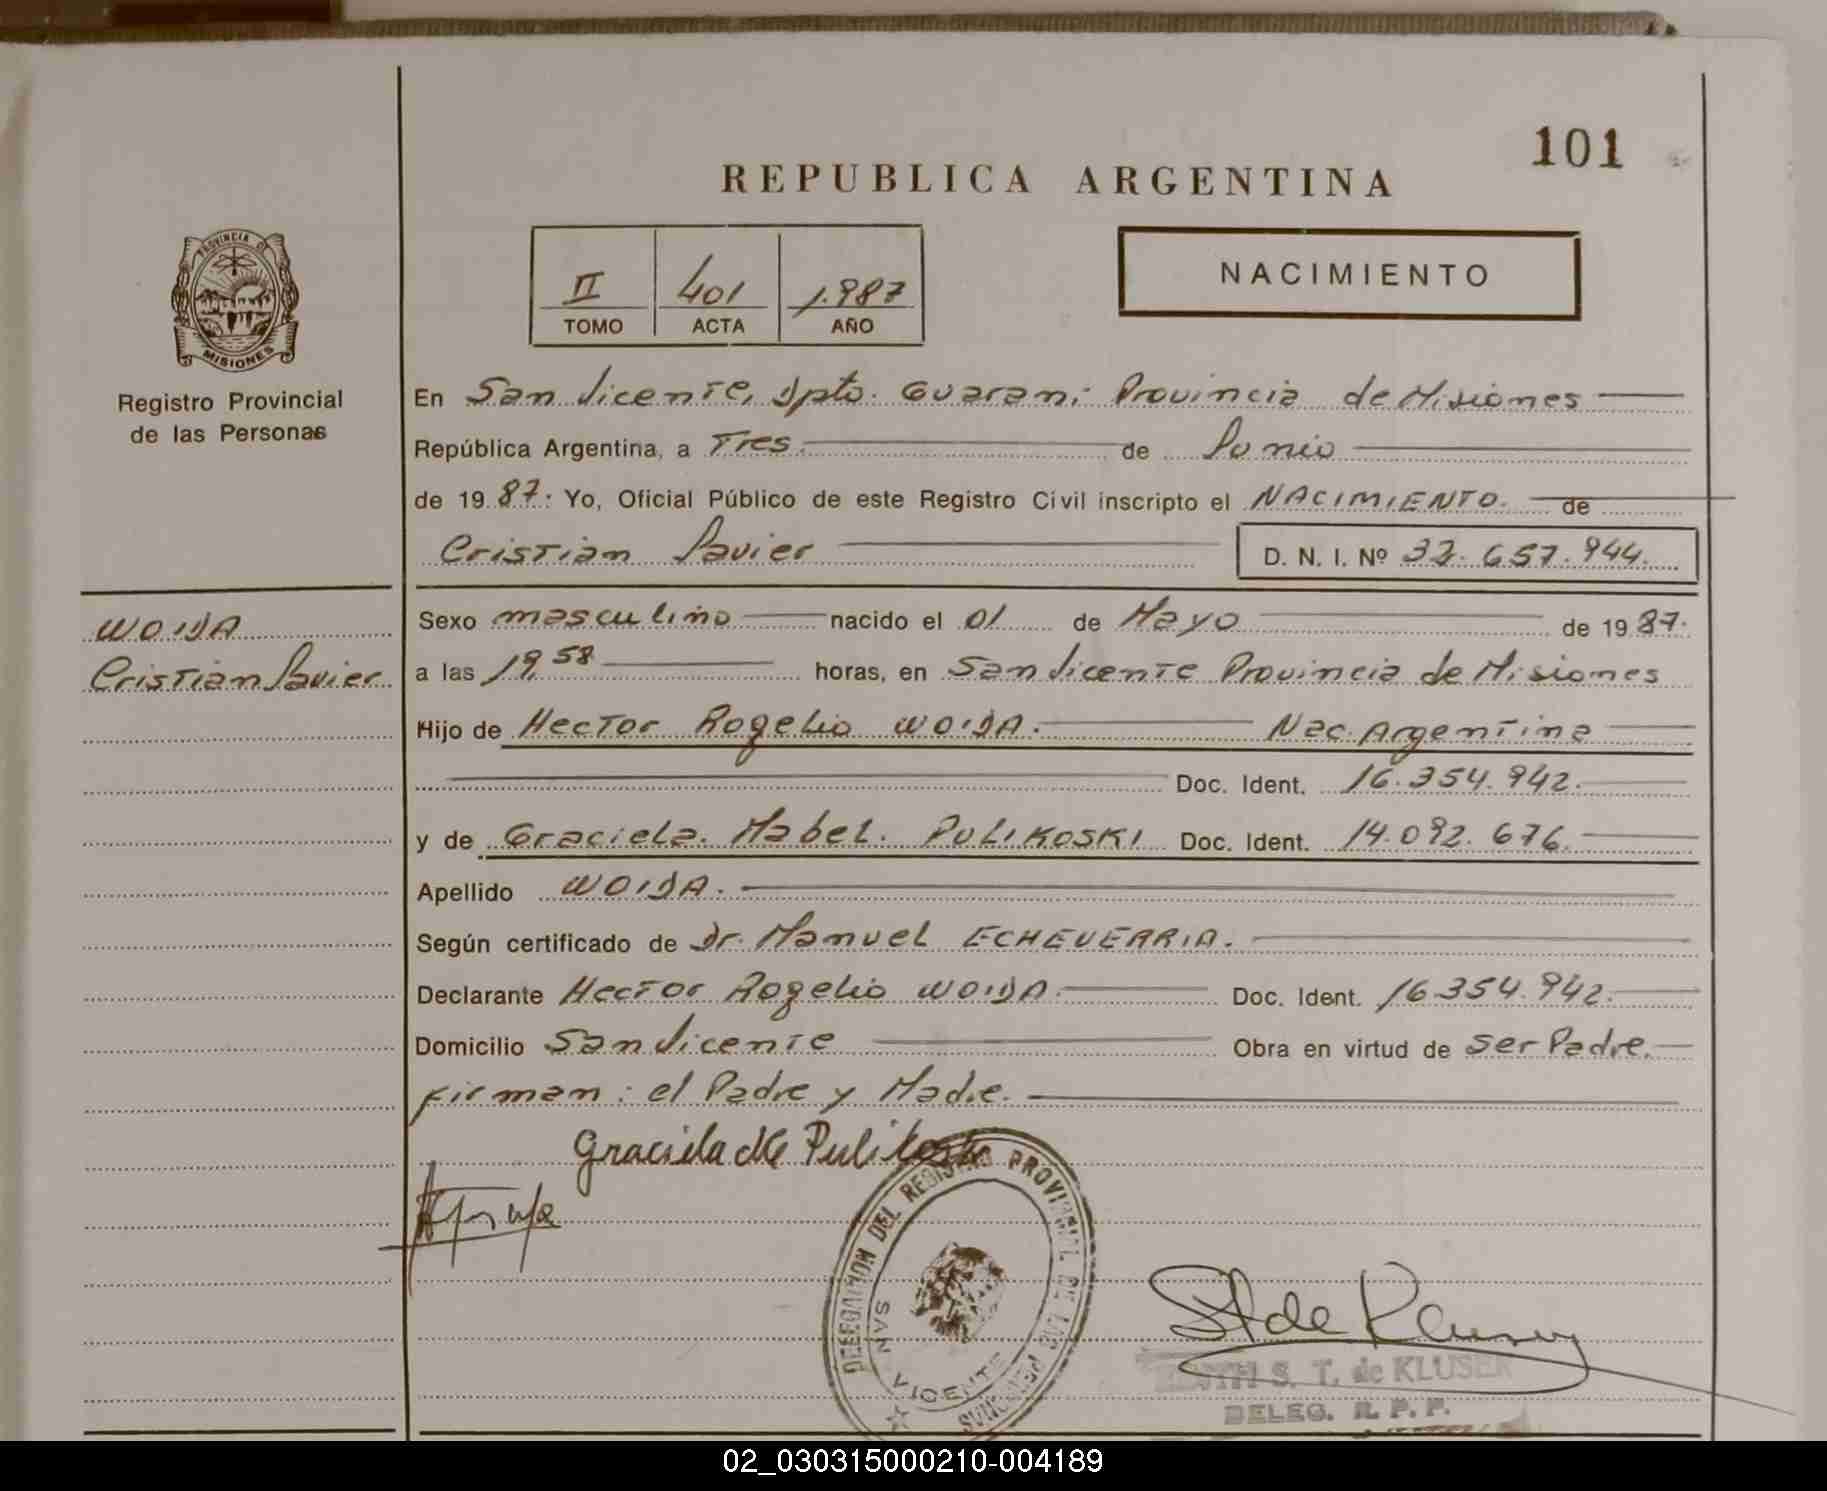 101
REPUBLICA ARGENTINA
II 401 1.987
TOMO ACTA AÑO
NACIMIENTO
PROVINCIA DE
MISIONES
Registro Provincial
de las Personas
En San Vicente, Dpto. Guarani Provincia de Misiones
República Argentina, a Tres de Junio
de 1987. Yo, Oficial Público de este Registro Civil inscripto el NACIMIENTO. de
Cristian Javier D. N. I. Nº 657.944.
WOIDA
Cristian Javier
Sexo masculino nacido el 01 de Mayo de 1987.
a las 19,58 horas, en San Vicente Provincia de Misiones
Hijo de Hector Rogelio WOIDA. Nac. Argentina
Doc. Ident. 16.354.942.
y de Graciela. Mabel. PULIKOSKI Doc. Ident. 14.092.676.
Apellido WOIDA.
Según certificado de Dr. Manuel ECHEVERRIA.
Declarante Hector Rogelio WOIDA. Doc. Ident. 16.354.942.
Domicilio San Vicente Obra en virtud de ser Padre.
Firman: el Padre y Madre.
Graciela de Pulikoski
DELEGACION DEL REGISTRO PROVINCIAL DE LAS PERSONAS
SAN VICENTE
S T de Kluser
EDITH S. T. de KLUSER
DELEG. R. P. P.
02_030315000210-004189